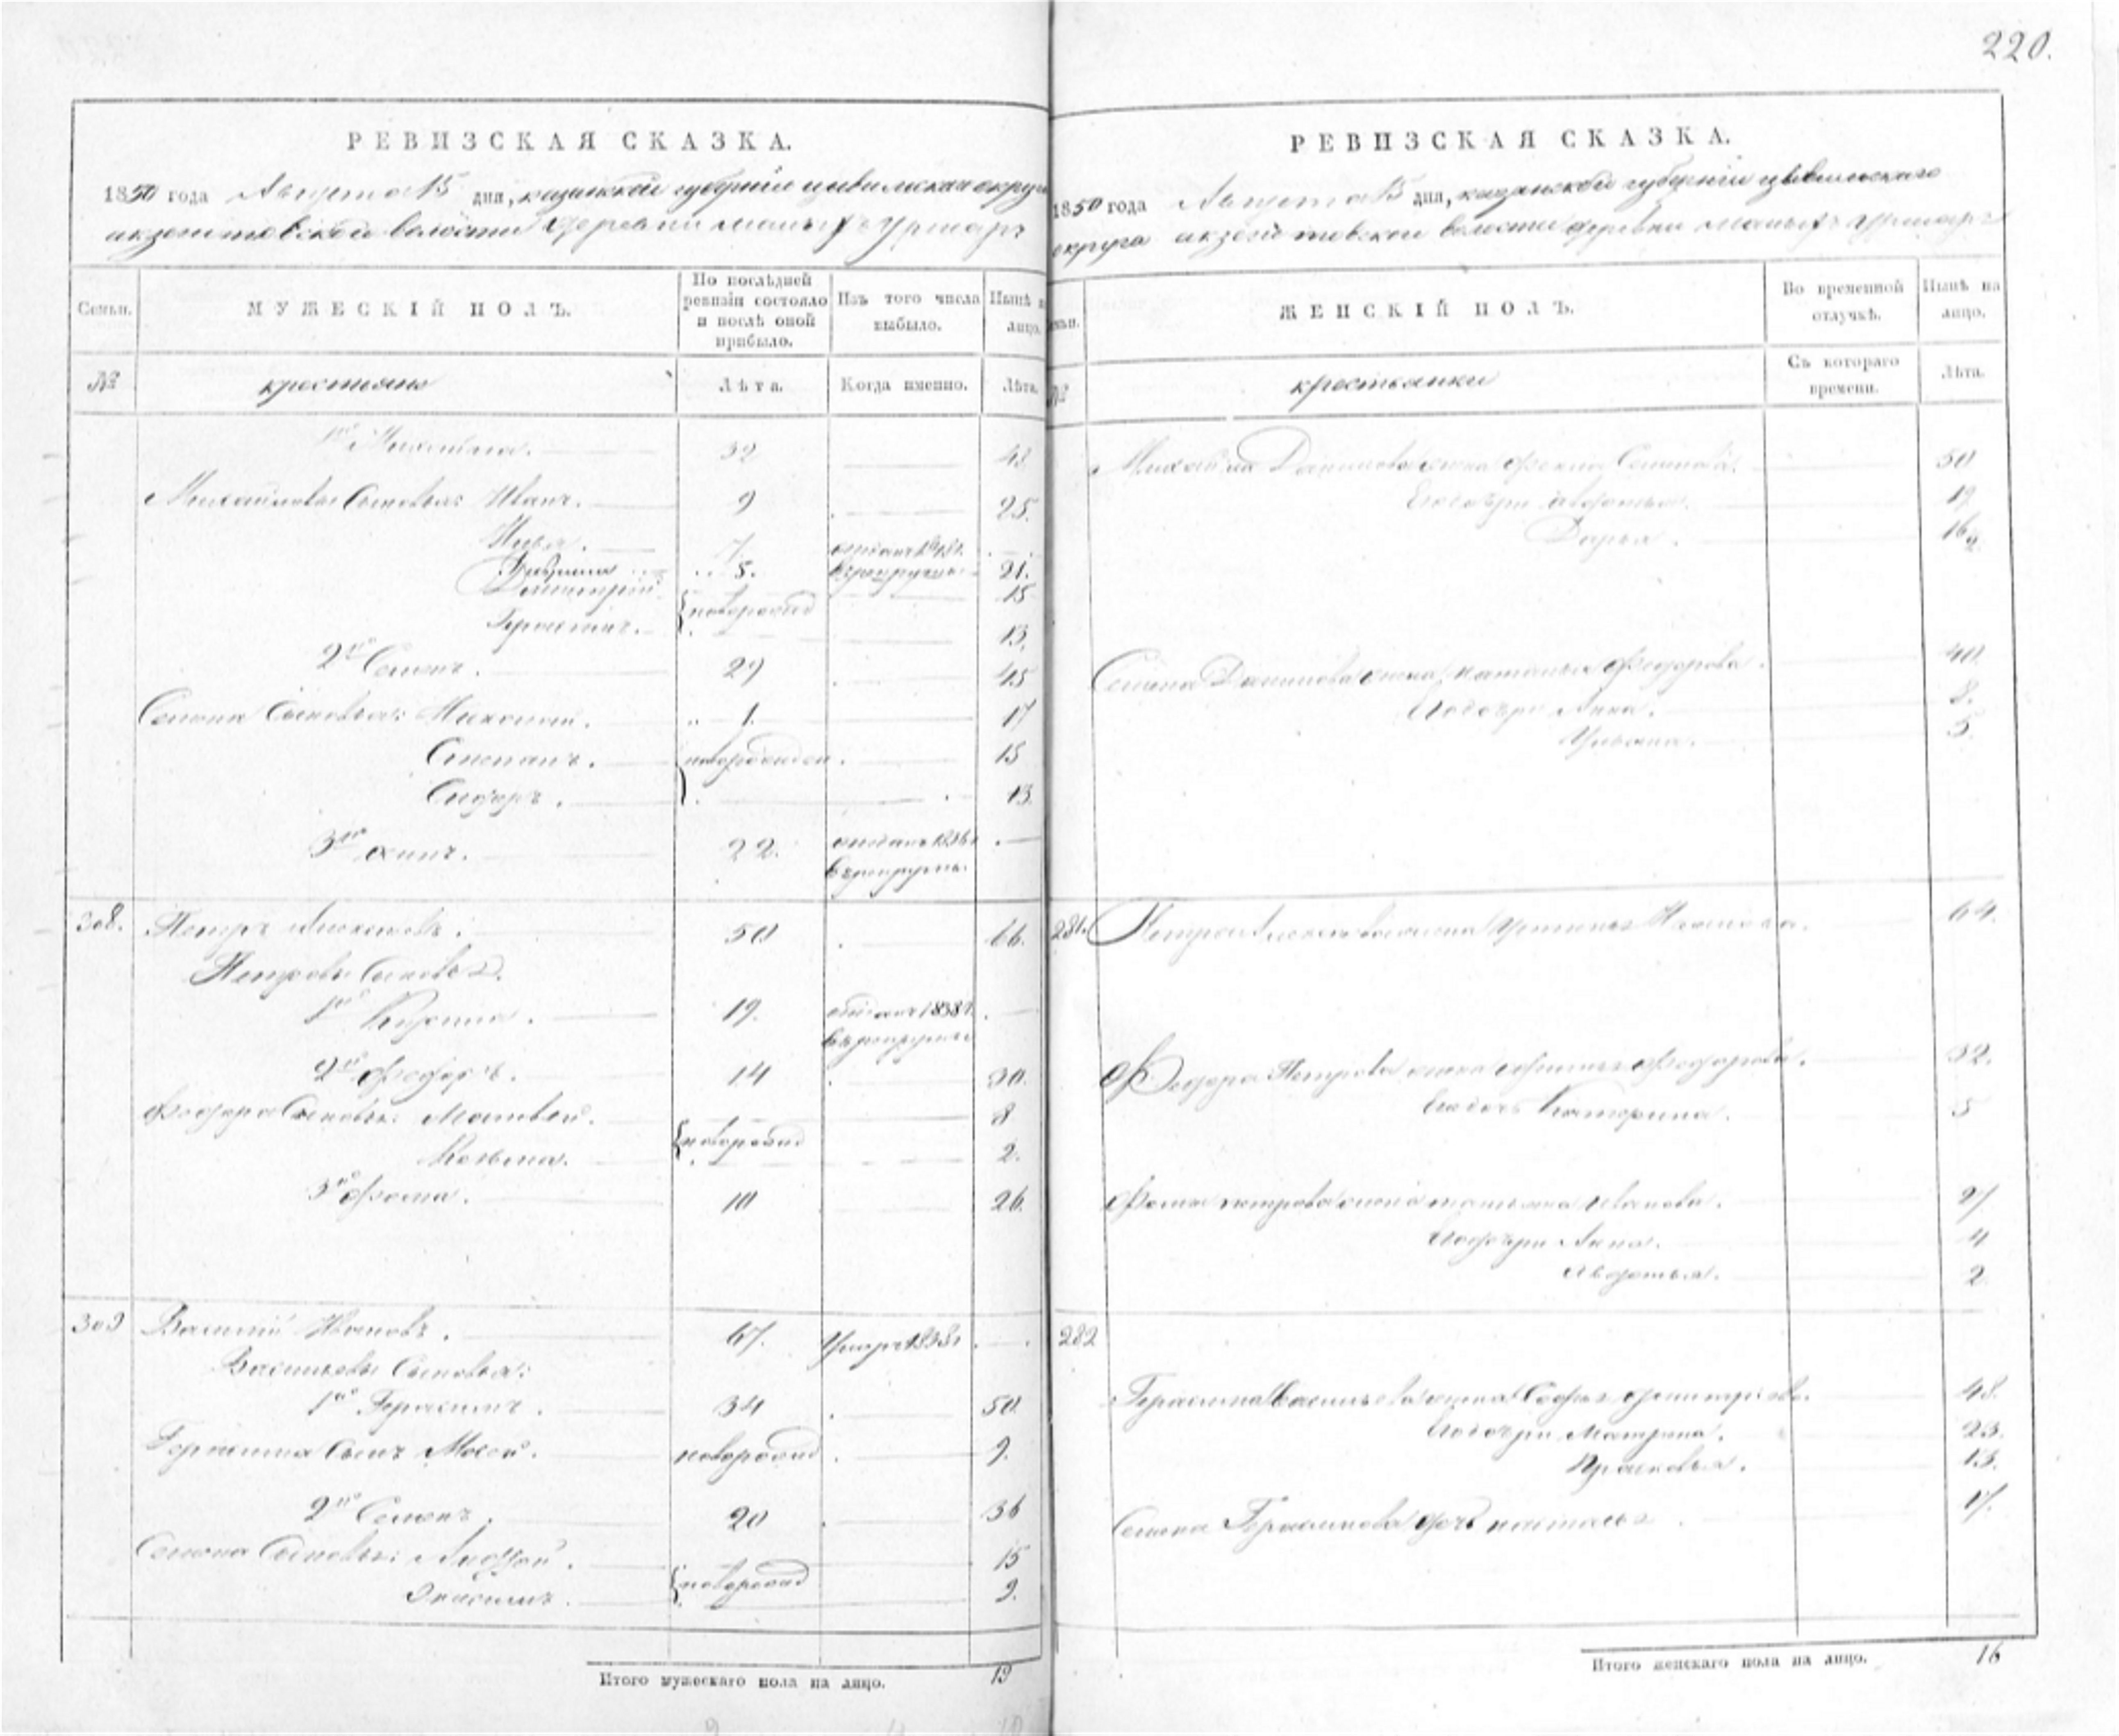 220.
РЕВИЗСКАЯ СКАЗКА.
1850 года Августа 15 дня, казанской губернiи цивильскаго округа
акзегитовской волости деревни малыхъ Урмаръ
Семьи.
МУЖЕСКІЙ ПОЛЪ.
По послѣдней ревизіи состояло и послѣ оной прибыло.
Изъ того числа выбыло.
Нынѣ на лицо.
№
крестьяне
Лѣта.
Когда именно.
Лѣта.
1й Михайла. 32 48
Михайловы Сыновья: Иванъ. 9 25.
7 отданъ
5. въ рекруты 21.
Дмитрій. новорожд 15
Герасимъ. 13.
2й Семенъ. 29 45
Семена Сыновья: Николай. 1. 17
Степанъ. новорожден 15
Сидоръ. 13.
3й 22. отданъ 1836
въ рекруты.
308. Петръ Алексеевъ. 50 66.
Петровы Сыновья.
1й 19. отданъ 1838
въ рекруты
2й Федоръ. 14 30.
Федора Сыновья: Матвей. новорожд 8
Козьма. 2.
3й Фома. 10 26.
309 Василий Ивановъ. 67. Умеръ 1838
Васильевы Сыновья:
1й Герасимъ. 34 50
Герасима Сынъ Мосей. новорожд 9.
2й Семенъ. 20 36
Семена Сыновья: Андрей. новорожд 15
Онисимъ. 9.
Итого мужескаго пола на лицо. 19
РЕВИЗСКАЯ СКАЗКА.
1850 года Августа 15 дня, казанской губернiи цивильскаго
округа акзегитовской волости деревни Малыхъ Урмаръ
Семьи.
ЖЕНСКІЙ ПОЛЪ.
Во временной отлучкѣ.
Нынѣ на лицо.
№
крестьянки
Съ котораго времени.
Лѣта.
Михайла Данилова жена Семенова. 50
Его дочери Авдотья. 19
Дарья. 16
Семена Данилова жена Наталья Федорова. 40.
Его дочери Анна. 8.
Ульяна. 5.
281. Петра Алексеева жена Устинья 64.
Федора Петрова жена Федорова. 32.
Его дочь Катерина. 5
Фомы петрова жена татьяна Иванова. 27
Его дочери Анна. 4
Авдотья. 2
282
Герасима Васильева жена Софья дмитриева. 48.
Его дочери Матрена. 23.
Прасковья. 13.
Семена Герасимова дочь наталья 17.
Итого женскаго пола на лицо. 16